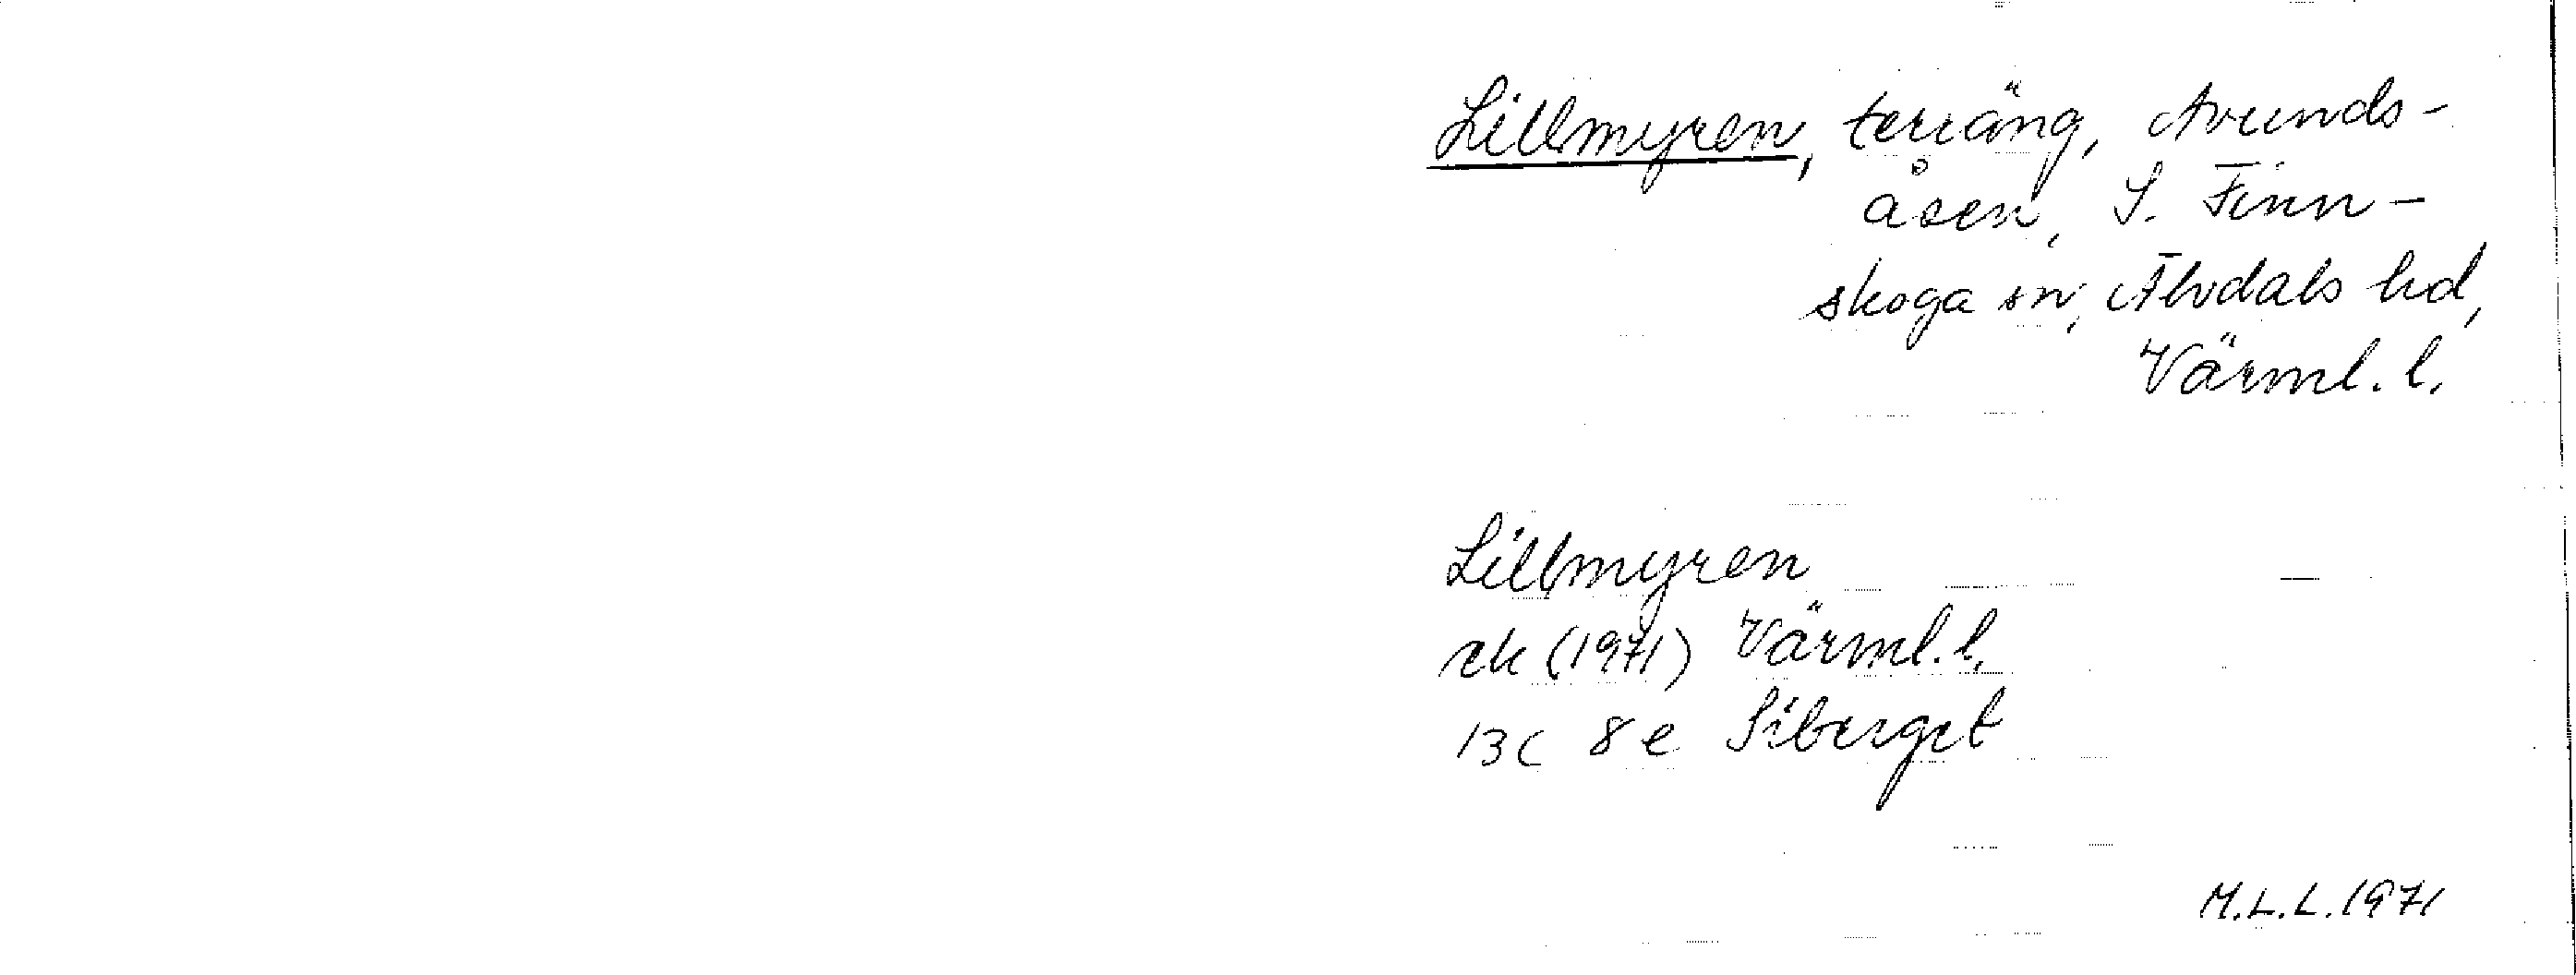 Lillmyren, terräng, Avunds-
åsen, S. Finn-
skoga sn, Älvdals hd,
Värml. l.
Lillmyren
rk (1971) Värml. l.
13C 8e Siberget
M.L.L. 1971